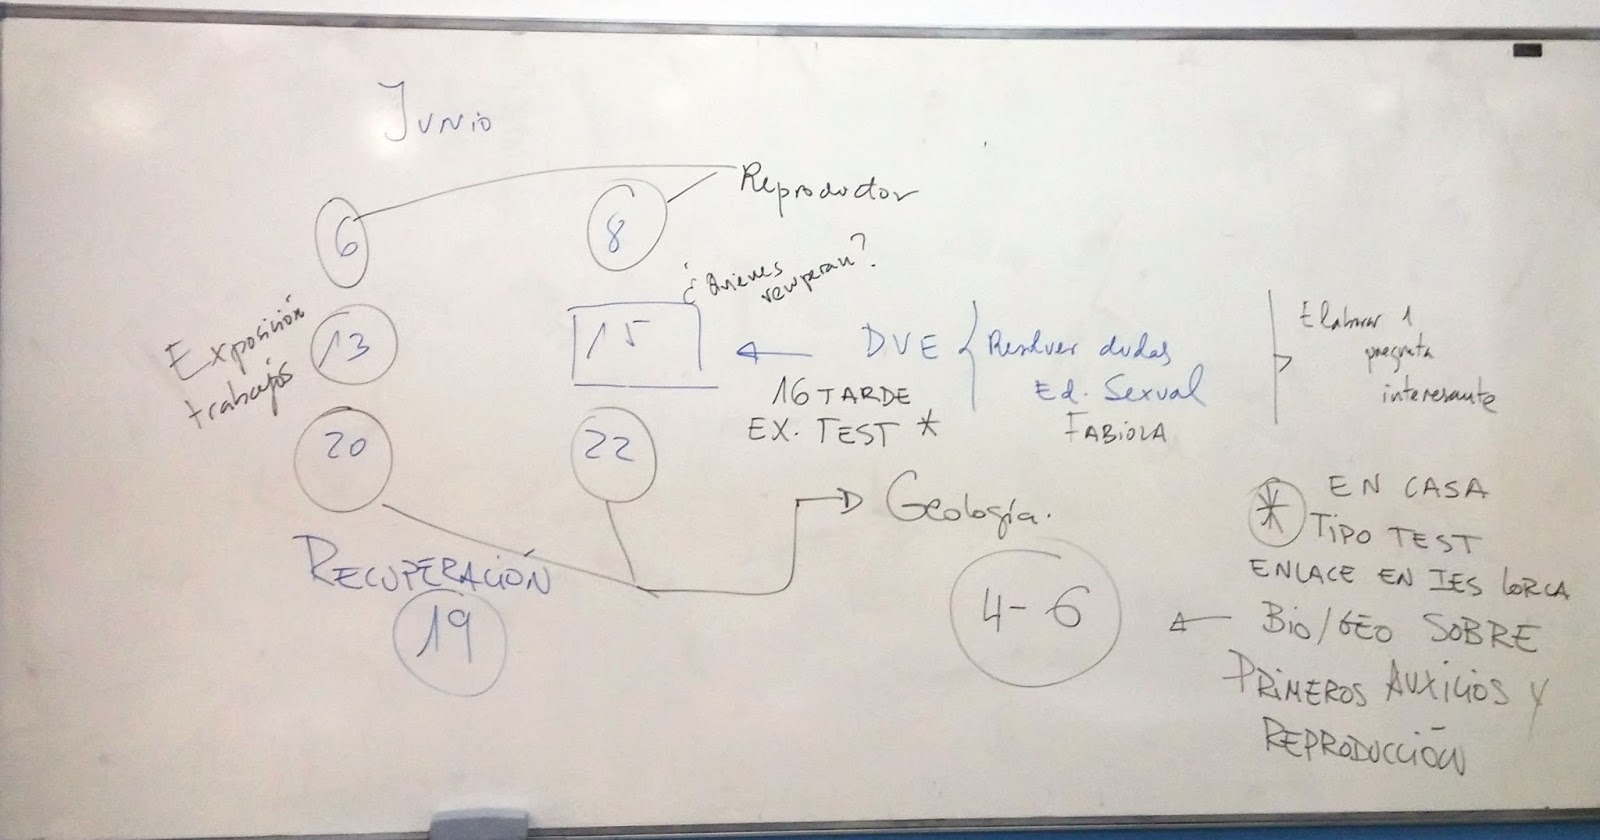 Junio
6
8
Reproductor
¿Quienes
recuperan?
Exposición
trabajos
13
15
DVE
Resolver dudas
Ed. Sexual
FABIOLA
Elaborar 1
pregunta
interesante
16 TARDE
EX. TEST *
20
22
Geología.
RECUPERACIÓN
19
4-6
* EN CASA
TIPO TEST
ENLACE EN IES LORCA
BIO/GEO SOBRE
PRIMEROS AUXILIOS Y
REPRODUCCIÓN